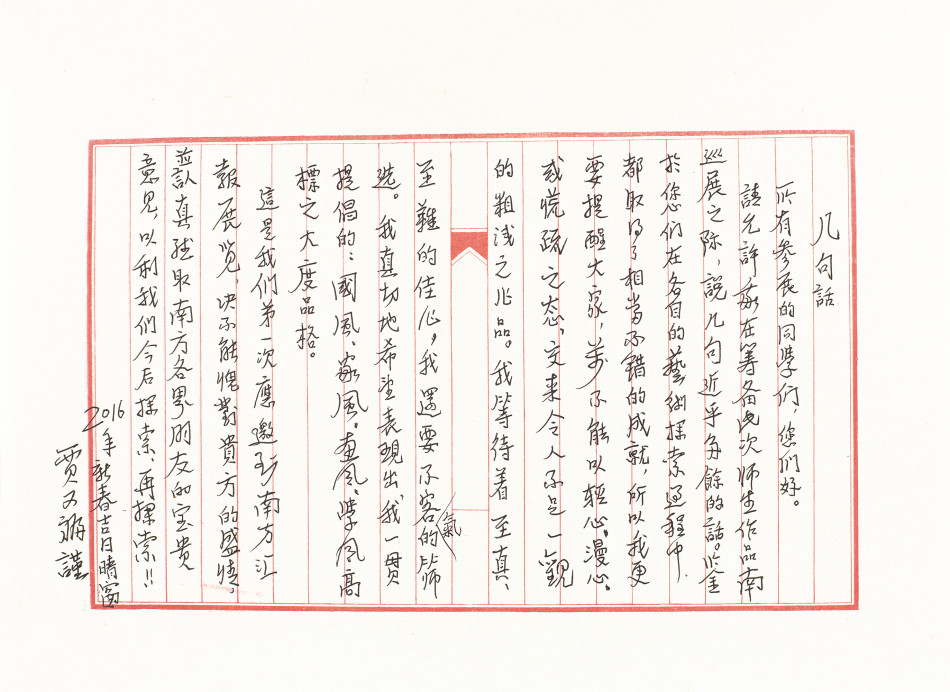 几句話
所有参展的同學们，您们好。
請允許我在筹备此次师生作品南
巡展之际，說几句近乎多餘的話。鉴
於您们在各自的藝術探索过程中
都取得了相当不錯的成就，所以我更
要提醒大家，萬不能以輕心、漫心、
或慌疏之态，交来令人不足一觀
的粗浅之作品。我等待着至真、
至難的佳作，我還要不客氣的筛
选。我真切地希望表現出，我一贯
提倡的：國風、家風、畫風、學風高
標之大度品格。
這是我们第一次應邀到南方汇
報展览，决不能愧對貴方的盛情，
並認真听取南方各界朋友的宝贵
意見，以利我们今后探索、再探索!!
2016年新春吉日晴窗
贾又福謹